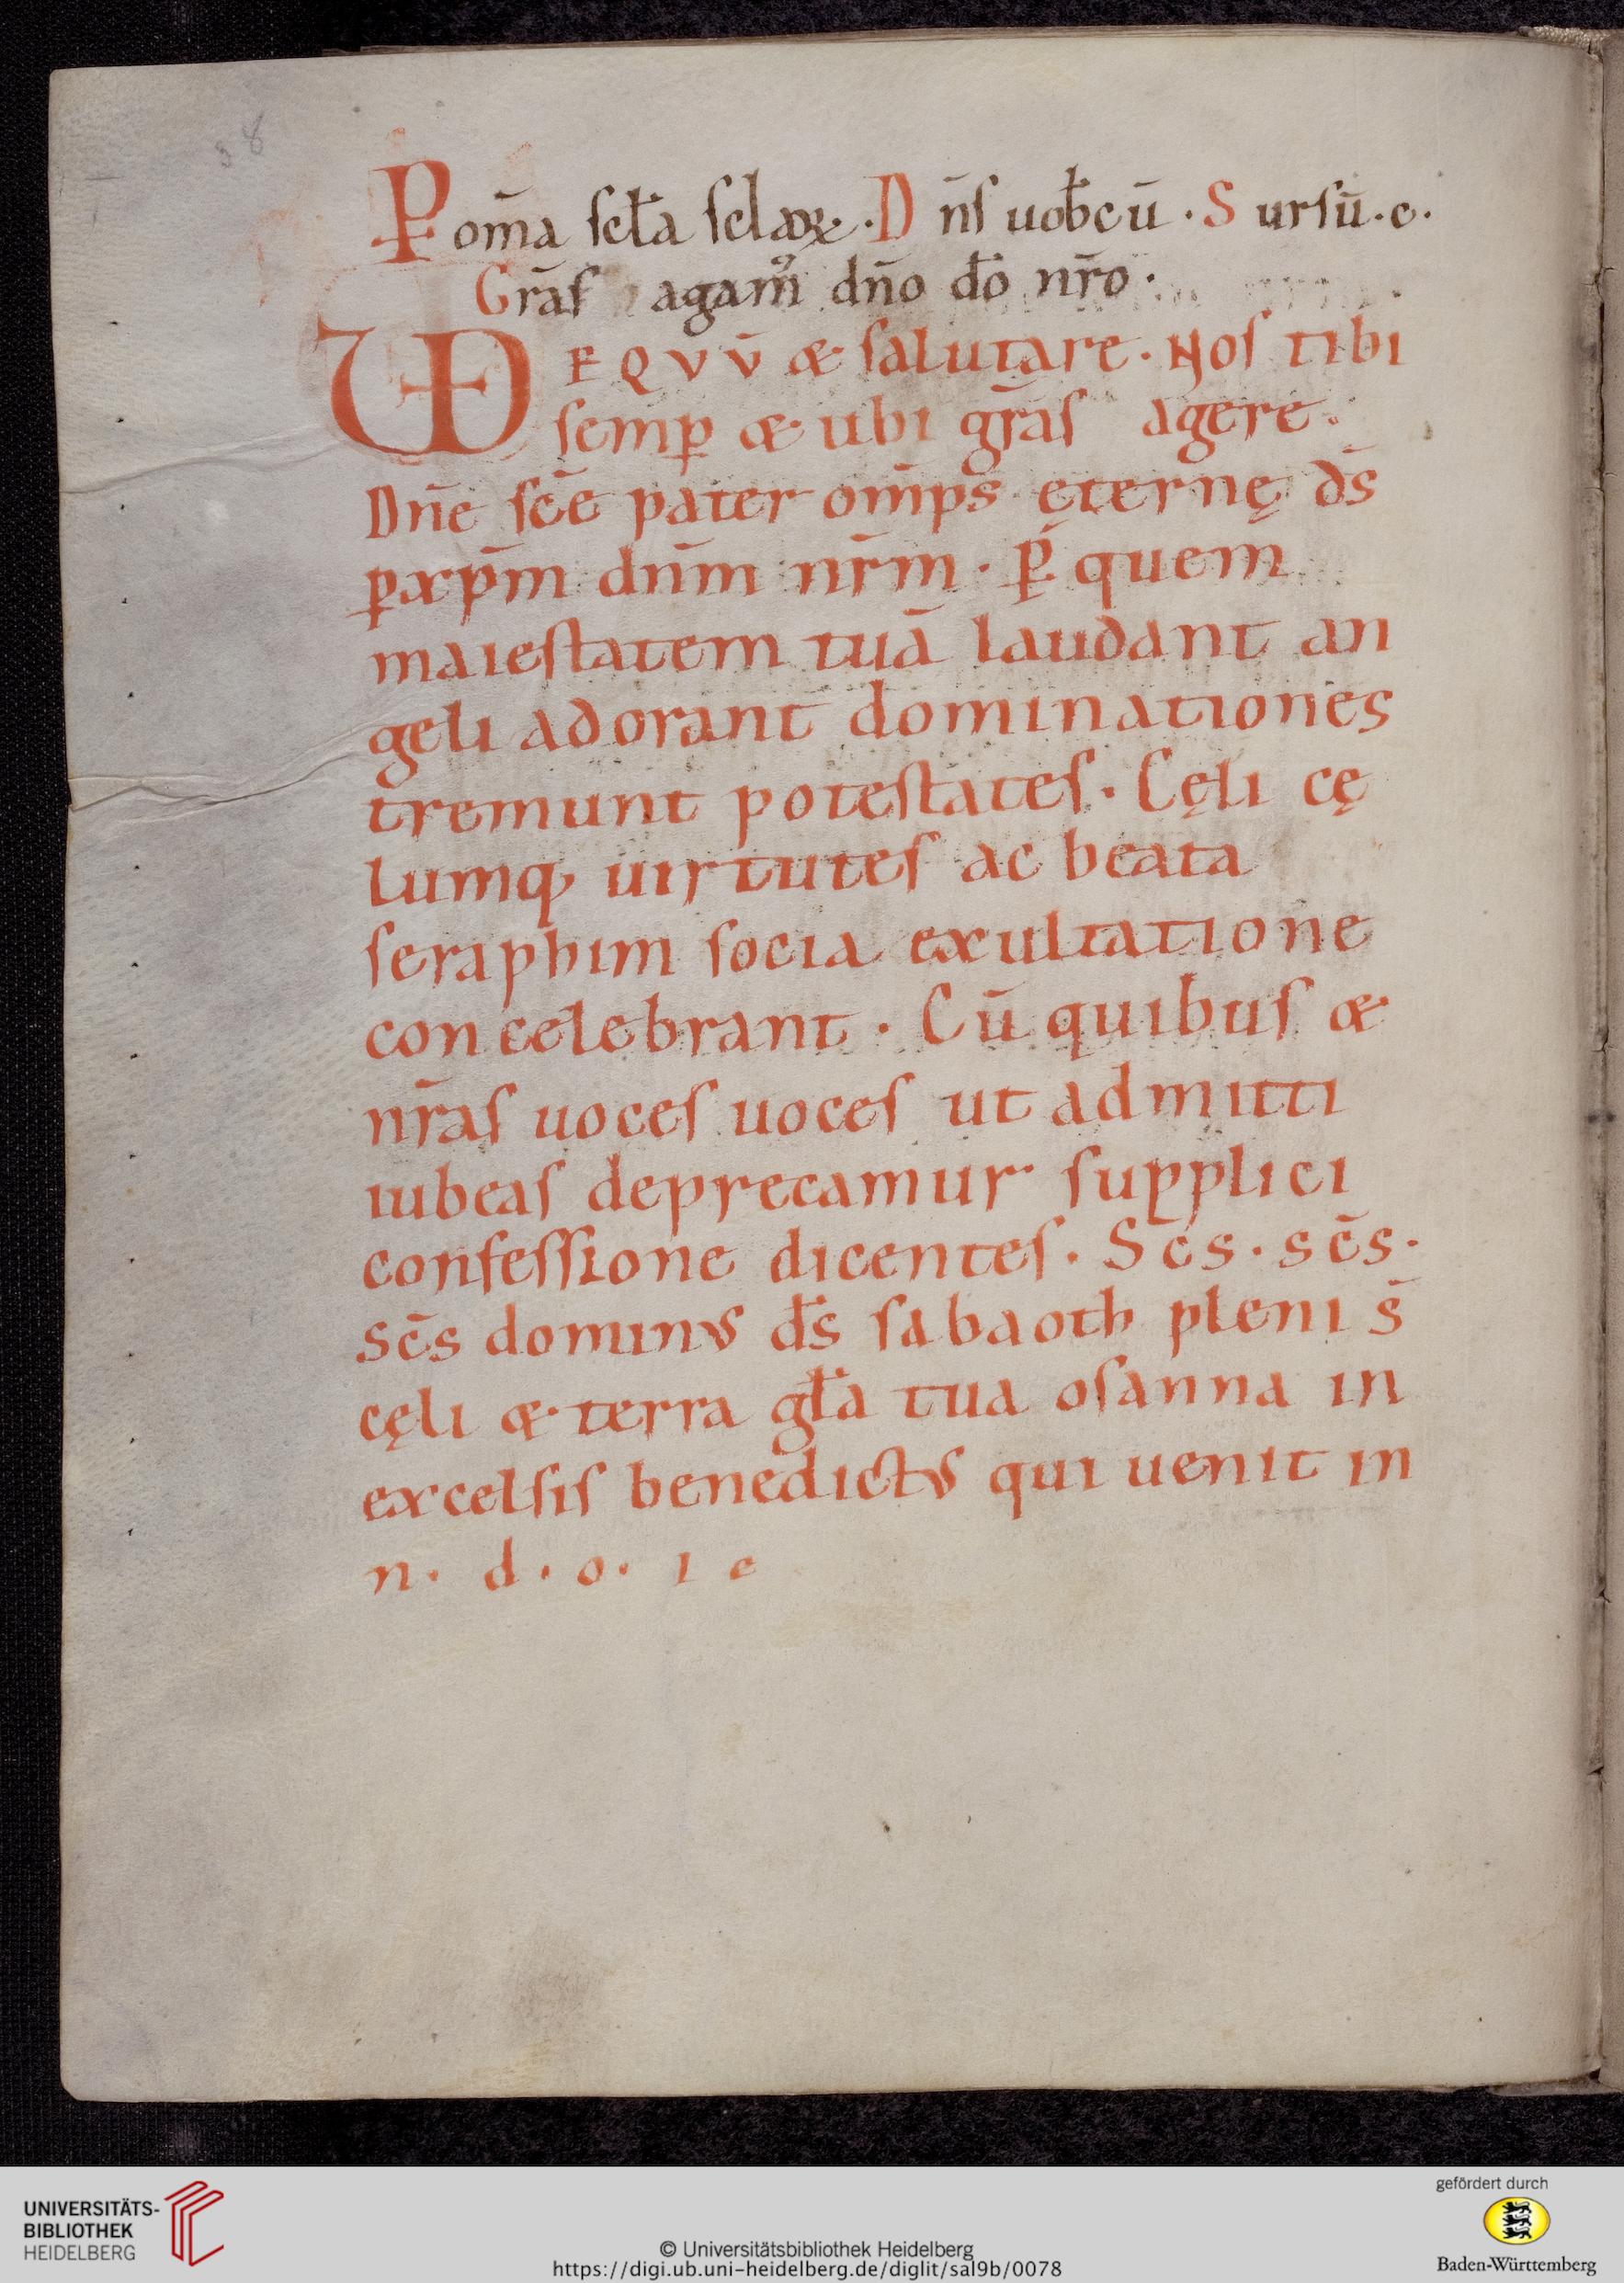 38
P om̄a scl̄a scloꝝ · D n̄s uob̄cū · S ursū · c ·
Gr̄as agam᷒ dn̄o dō nr̄o ·
VD EQVV̄ & salutare · Nos tibi
semꝑ & ubi gr̄as agere ·
Dn̄e sc̄e pater om̄ps ęternę ds̄
ꝑ xp̄m dn̄m nr̄m · ꝑ quem
maiestatem tuā laudant an
geli adorant dominationes
tremunt potestates · Cęli cę
lumq; uirtutes ac beata
seraphim socia exultatione
concelebrant · Cū quibus &
nr̄as uoces uoces ut admitti
iubeas deprecamur supplici
confessione dicentes · Sc̄s · sc̄s ·
sc̄s dominus ds̄ sabaoth pleni s̄
cęli & terra gl̄a tua osanna in
excelsis benedictus qui uenit in
n · d · o · i e
UNIVERSITÄTS-
BIBLIOTHEK
HEIDELBERG
© Universitätsbibliothek Heidelberg
https://digi.ub.uni-heidelberg.de/diglit/sal9b/0078
gefördert durch
Baden-Württemberg